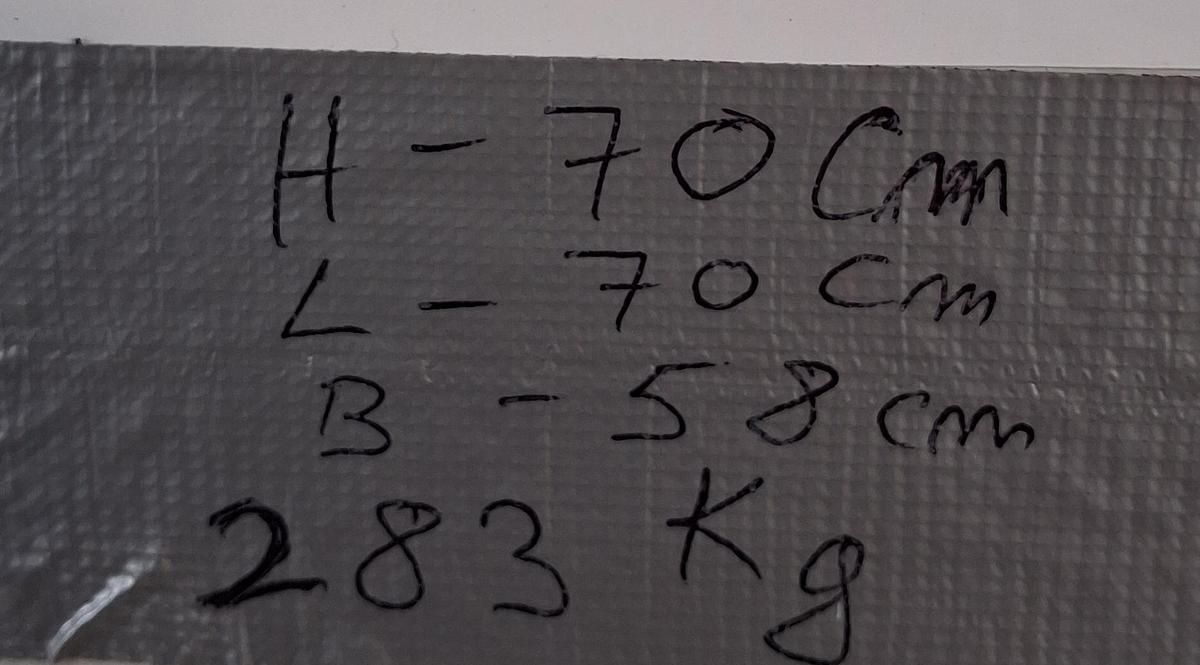 H - 70 Cm
L - 70 cm
B - 58 cm
283 Kg